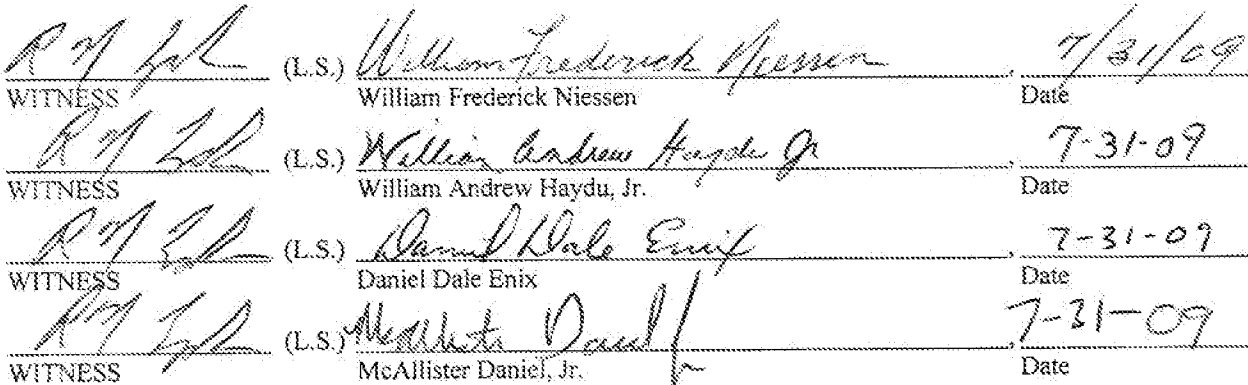 R M (L.S.) William Frederick Niessen, 7/31/09
WITNESS William Frederick Niessen Date
R M (L.S.) William Andrew Haydu Jr, 7-31-09
WITNESS William Andrew Haydu, Jr. Date
R M (L.S.) Daniel Dale Enix, 7-31-09
WITNESS Daniel Dale Enix Date
R M (L.S.) McAllister Daniel Jr, 7-31-09
WITNESS McAllister Daniel, Jr. Date